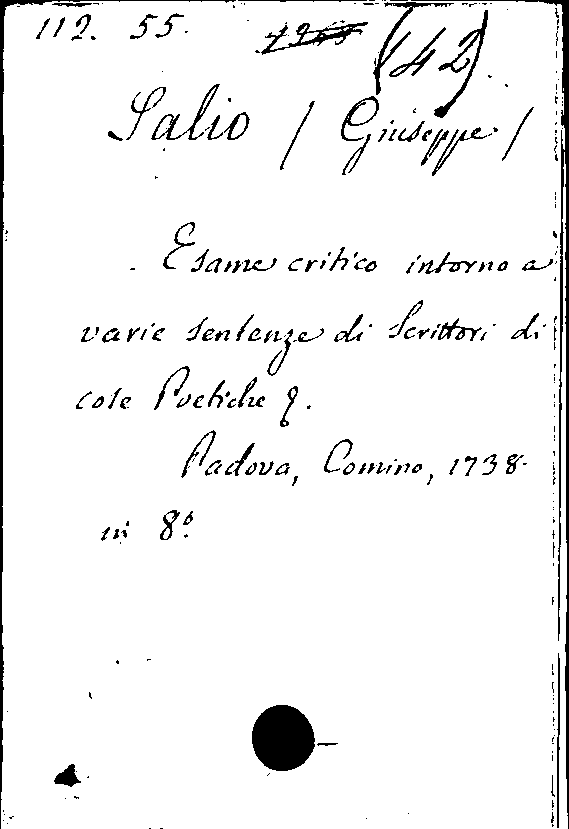 112. 55. (42)
Salio / Giuseppe /
Esame critico intorno a
varie sentenze di Scrittori di
cose Poetiche &.
Padova, Comino, 1738.
in 8º.